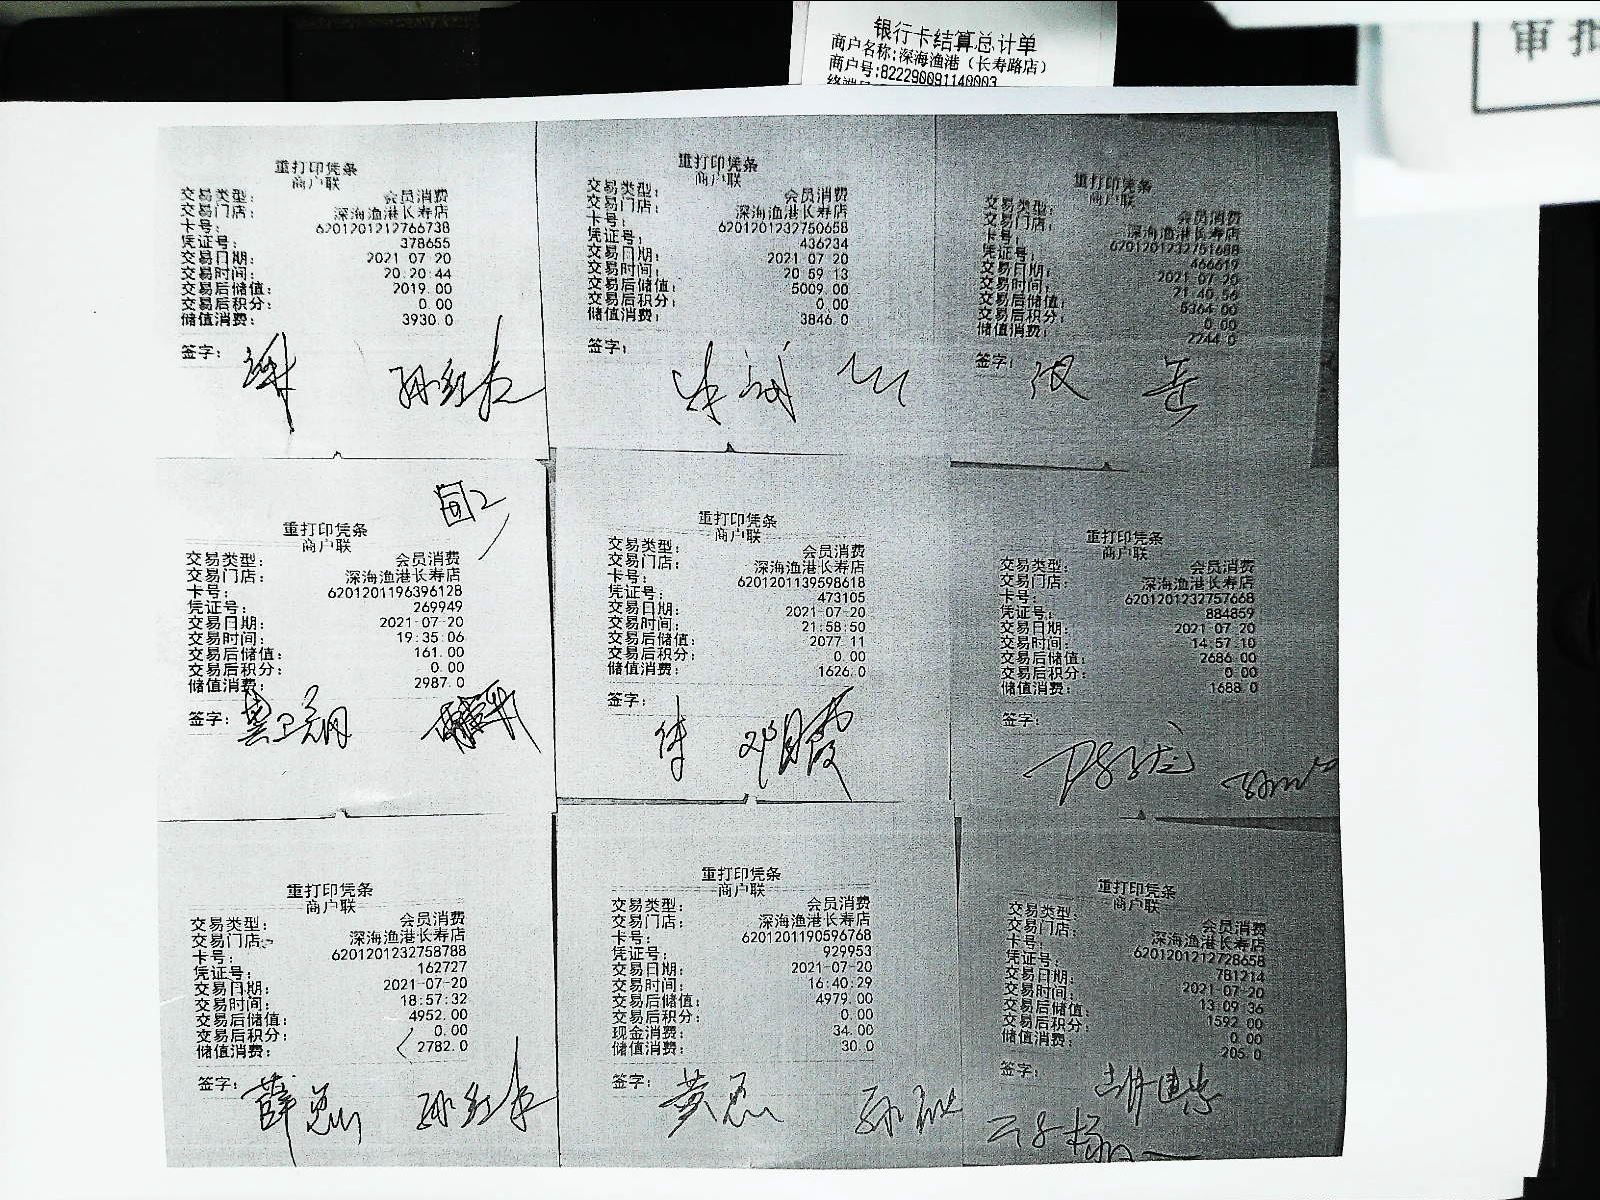 银行卡结算总计单
商户名称:深海渔港(长寿路店)
商户号:822290091140003
审批
重打印凭条
商户联
交易类型: 会员消费
交易门店: 深海渔港长寿店
卡号: 6201201212766738
凭证号: 378655
交易日期: 2021-07-20
交易时间: 20:20:44
交易后储值: 2019.00
交易后积分: 0.00
储值消费: 3930.0
签字: 谢
重打印凭条
商户联
交易类型: 会员消费
交易门店: 深海渔港长寿店
卡号: 6201201232750658
凭证号: 436234
交易日期: 2021-07-20
交易时间: 20:59:13
交易后储值: 5009.00
交易后积分: 0.00
储值消费: 3846.0
签字: 朱诚
重打印凭条
商户联
交易类型: 会员消费
交易门店: 深海渔港长寿店
卡号: 6201201232751688
凭证号: 466619
交易日期: 2021-07-20
交易时间: 21:40:56
交易后储值: 5364.00
交易后积分: 0.00
储值消费: 2244.0
签字:
重打印凭条
商户联
交易类型: 会员消费
交易门店: 深海渔港长寿店
卡号: 6201201196396128
凭证号: 269949
交易日期: 2021-07-20
交易时间: 19:35:06
交易后储值: 161.00
交易后积分: 0.00
储值消费: 2987.0
签字:
重打印凭条
商户联
交易类型: 会员消费
交易门店: 深海渔港长寿店
卡号: 6201201139598618
凭证号: 473105
交易日期: 2021-07-20
交易时间: 21:58:50
交易后储值: 2077.11
交易后积分: 0.00
储值消费: 1626.0
签字:
重打印凭条
商户联
交易类型: 会员消费
交易门店: 深海渔港长寿店
卡号: 6201201232757668
凭证号: 884859
交易日期: 2021-07-20
交易时间: 14:57:10
交易后储值: 2686.00
交易后积分: 0.00
储值消费: 1688.0
签字:
重打印凭条
商户联
交易类型: 会员消费
交易门店: 深海渔港长寿店
卡号: 6201201232758788
凭证号: 162727
交易日期: 2021-07-20
交易时间: 18:57:32
交易后储值: 4952.00
交易后积分: 0.00
储值消费: 2782.0
签字: 薛
重打印凭条
商户联
交易类型: 会员消费
交易门店: 深海渔港长寿店
卡号: 6201201190596768
凭证号: 929953
交易日期: 2021-07-20
交易时间: 16:40:29
交易后储值: 4979.00
交易后积分: 0.00
现金消费: 34.00
储值消费: 30.0
签字: 黄
重打印凭条
商户联
交易类型: 会员消费
交易门店: 深海渔港长寿店
卡号: 6201201212728658
凭证号: 781214
交易日期: 2021-07-20
交易时间: 13:09:36
交易后储值: 1592.00
交易后积分: 0.00
储值消费: 205.0
签字: